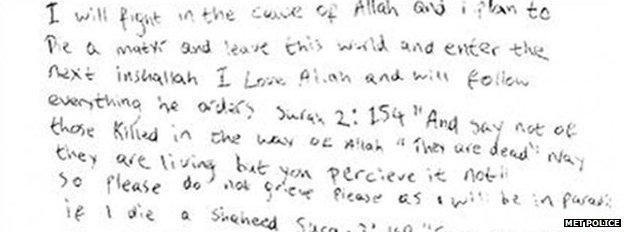 I will fight in the cause of Allah and i plan to
Die a matyr and leave this world and enter the
next inshallah I Love Allah and will follow
everything he orders Surah 2:154 "And say not of
those Killed in the way of Allah "They are dead" Nay
they are living but you percieve it not"
So Please do not grieve Please as i will be in
if I die a shaheed
MET POLICE